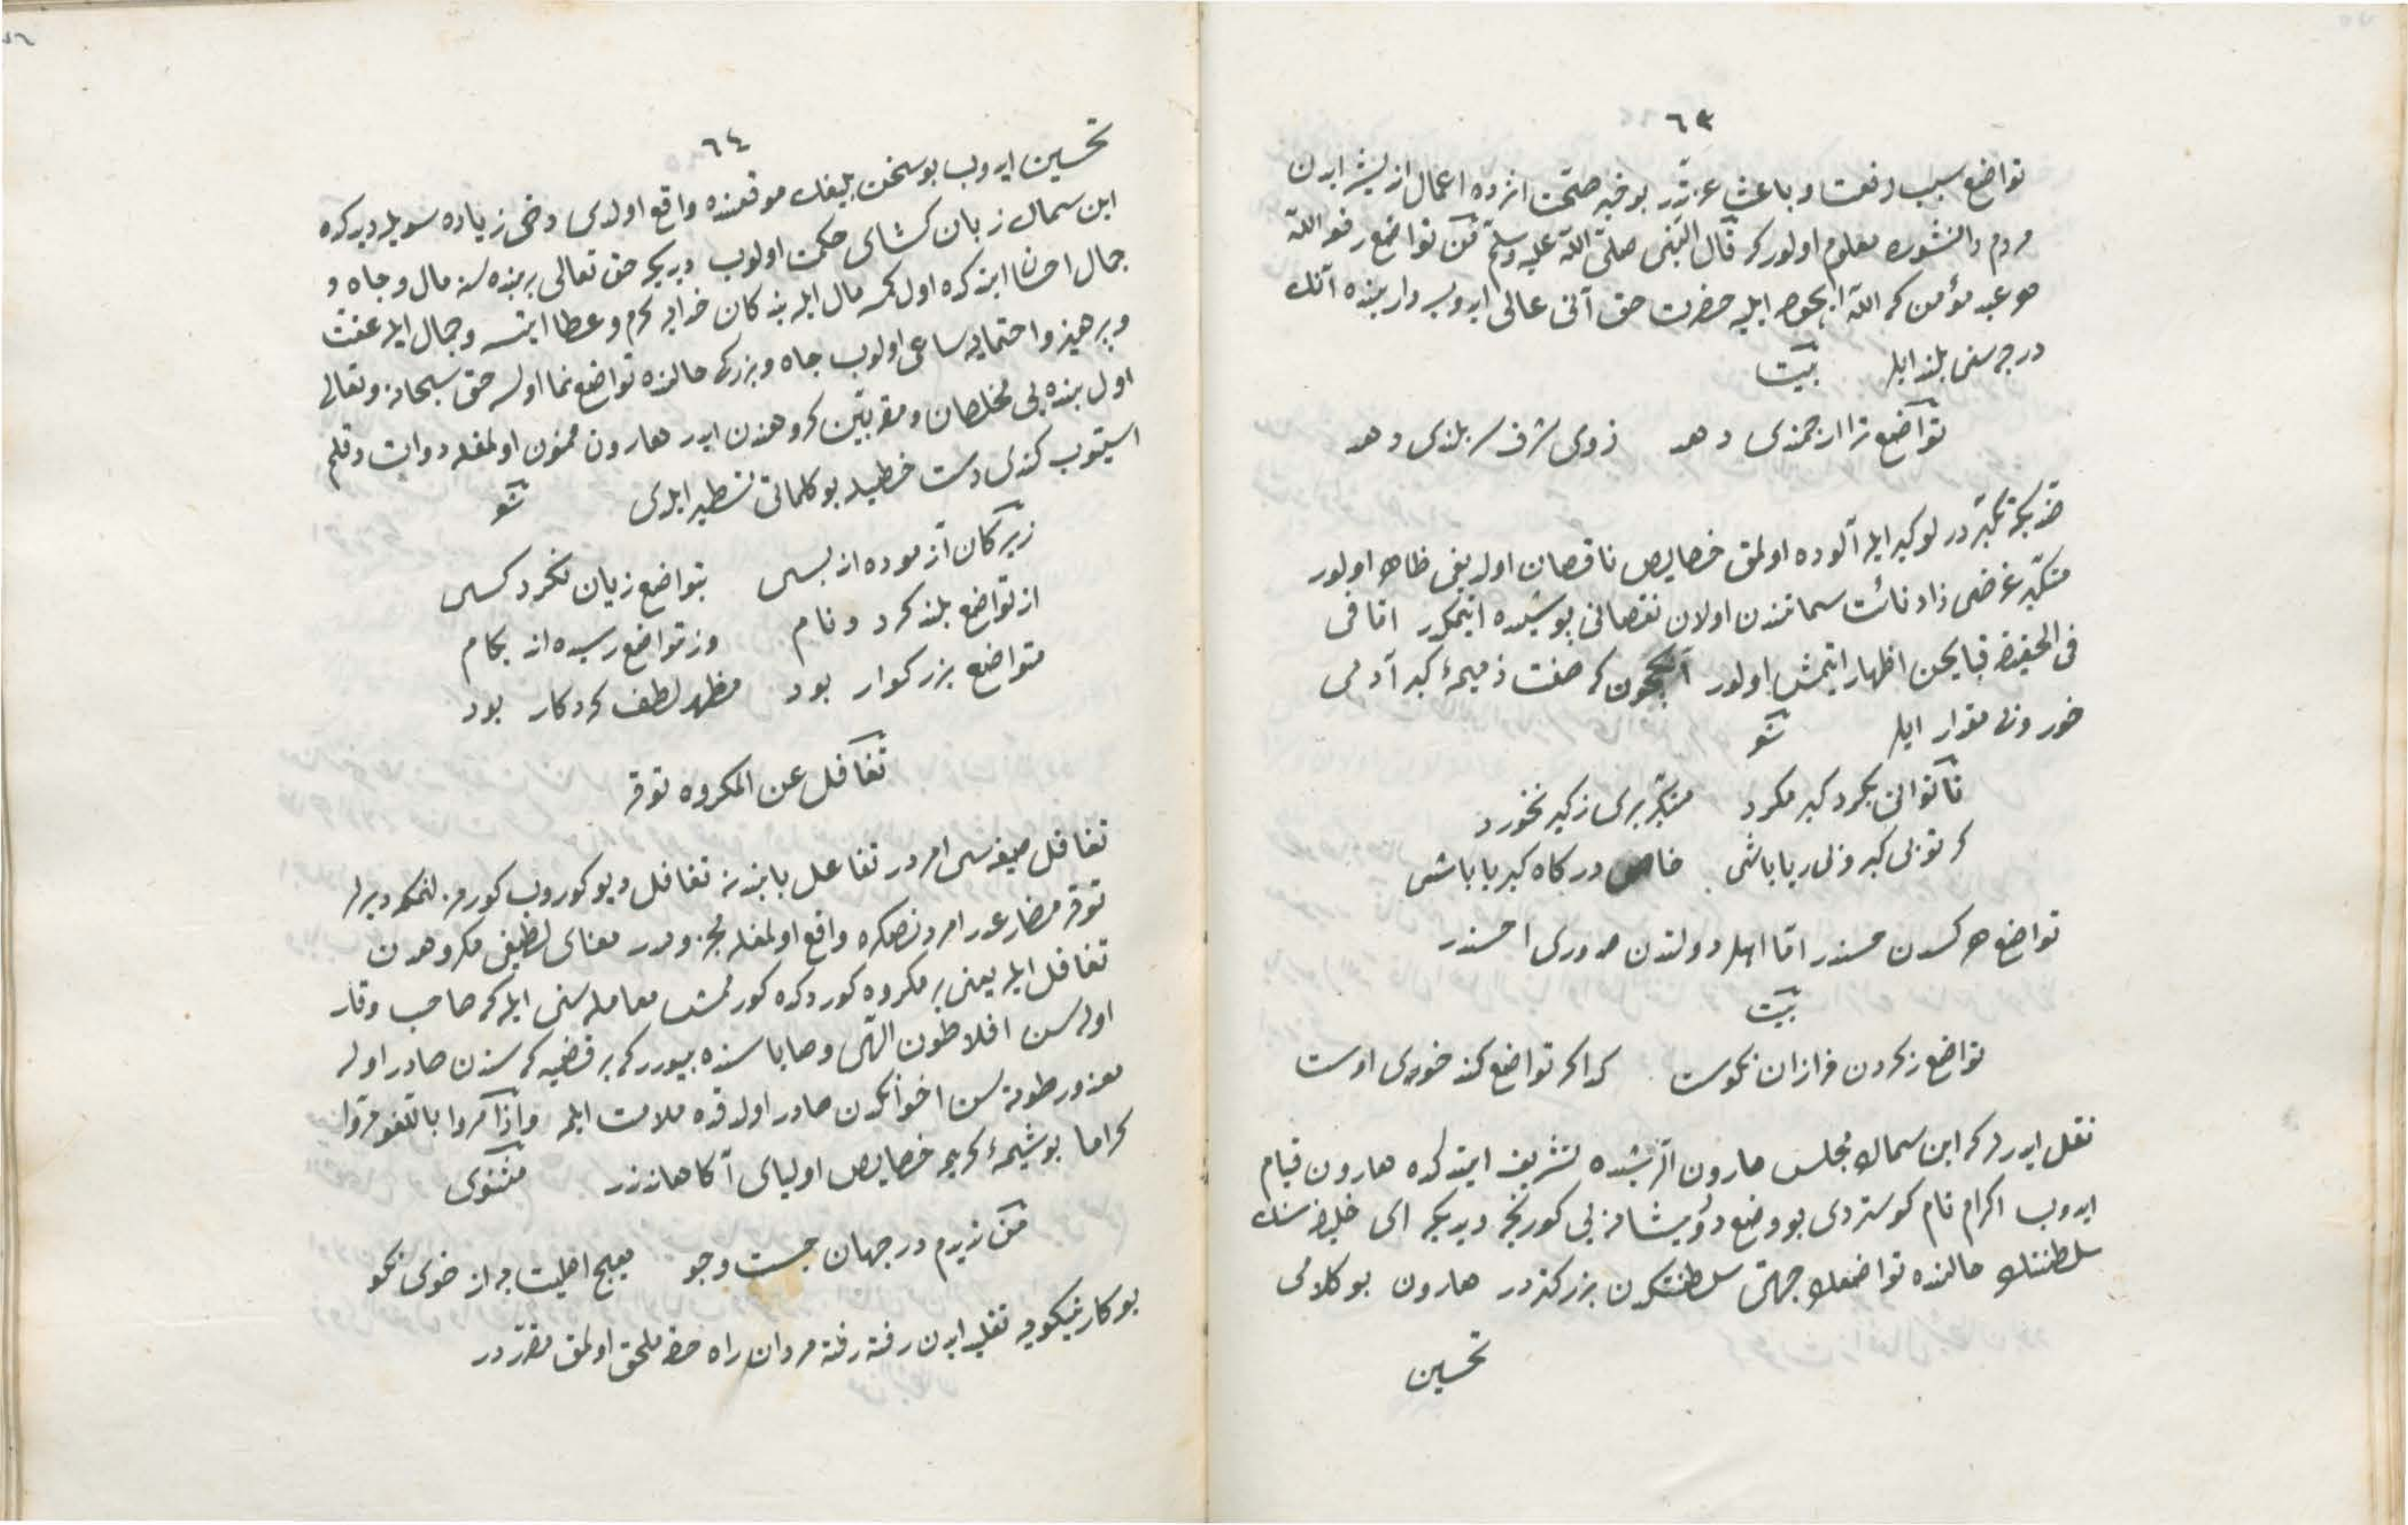 ٦٣
تواضع سبب رفعت و باعث عزّتدر بو خبر صحّت اثرده اعمال اندیشه ایدن
مردم دانشوره معلوم اولور که قال النّبی صلّی اللّه علیه وسلّم مَن تواضع رفعه اللّه
هر عبد مؤمن که اللّه ایچون ایله حضرت حق آنی عالی ایدوب دارینده آنك
درجه سنی بلند ایلر بیت
تواضع ترا ارجمندی دهد ز روی شرف سربلندی دهد
ضدّ تکبّر در لو کبر ایله آلوده اولمق خصایص ناقصان اولدیغی ظاهر اولور
متکبّر غرضی ذاد نائت سماتندن اولان نقصانی پوشیده ایتمکدر امّا فی
فی الحقیقه قبایحن اظهار ایتمش اولور آنیچون که صفت ذمیمۀ کبر آدمی
خور و بی مقدار ایلر شعر
تا توانی بکرد کبر مکرد متکبّر بری ز کبر نخورد
کر تو بی کبر و بی ریا باشی خاص درکاه کبریا باشی
تواضع هر کسدن حسندر امّا اهل دولتدن صدوری احسندر
بیت
تواضع ز کردن فرازان نکوست کدا کر تواضع کند خوی اوست
نقل ایدرلر که ابن سماك مجلس هارون الرّشیده تشریف ایتدکده هارون قیام
ایدوب اکرام تام کوستردی بو وضع درویشانه یی کورنجه دیدیکه ای خلیفه سنك
سلطنتك حالنده تواضعك جهتی سلطنتکدن بزرکتردر هارون بو کلامی
تحسین
٦٤
تحسین ایدوب بو سخن بلیغك موقعنده واقع اولدی دخی زیاده سویله دیدکده
ابن سماك زبان کشای حکمت اولوب دیدیکه حق تعالی بر بنده سنه مال و جاه و
جمال احسان ایتدکده اول کمسه مال ایله بندکان خدایه کرم و عطا ایتسه و جمال ایله عفّت
و پرهیز و احتمایه ساعی اولوب جاه و بزرکی حالنده تواضع نما اولسه حق سبحانه و تعالی
اول بنده یی مخلصان و مقرّبین کروهندن ایدر هارون ممنون اولمغله دوات و قلم
استیوب کندی دست خطیله بو کلماتی تسطیر ایلدی شعر
زیرکان آزموده اند بسی بتواضع زیان نکرد کسی
از تواضع بلند کردد نام وز تواضع رسیده اند بکام
متواضع بزرکوار بود مظهر لطف کردکار بود
تغافل عن المکروه توقر
تغافل صیغه سی امردر تفاعل بابندنه تغافل دیو کوروب کورمزلنمکه دیرلر
توقر مضارعدر امردنصکره واقع اولمغله مجزومدر معنای لطیفی مکروهدن
تغافل ایله یعنی بر مکروه کوردکده کورممش معامله سنی ایله که صاحب وقار
اوله سن افلاطون الٓهی وصایاسنده بیوررکه بر قضیه که سندن صادر اوله
معذور طوته سن اخوانکدن صادر اولدقده ملامت ایلمه وَاِذا مَرّوا باللّغو مَرّوا
کراما بو شیمۀ کریمه خصایص اولیای آکاهاندندر مثنوی
من ندیدم در جهان جست وجو هیچ اهلیت به از خوی نکو
بو کار نیکویه تقلید ایدن رفته رفته مردان راه حقّه ملحق اولمق مقرّردر